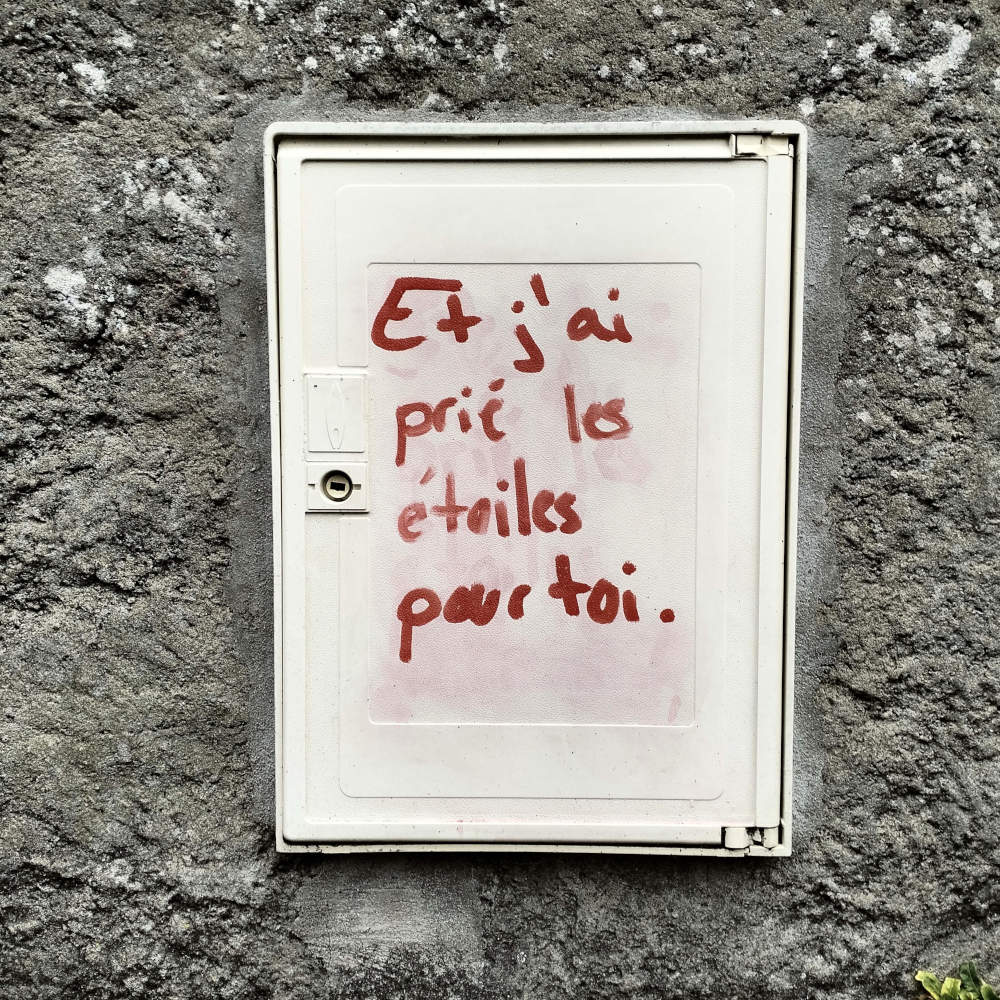 Et j'ai
prié les
étoiles
pour toi.